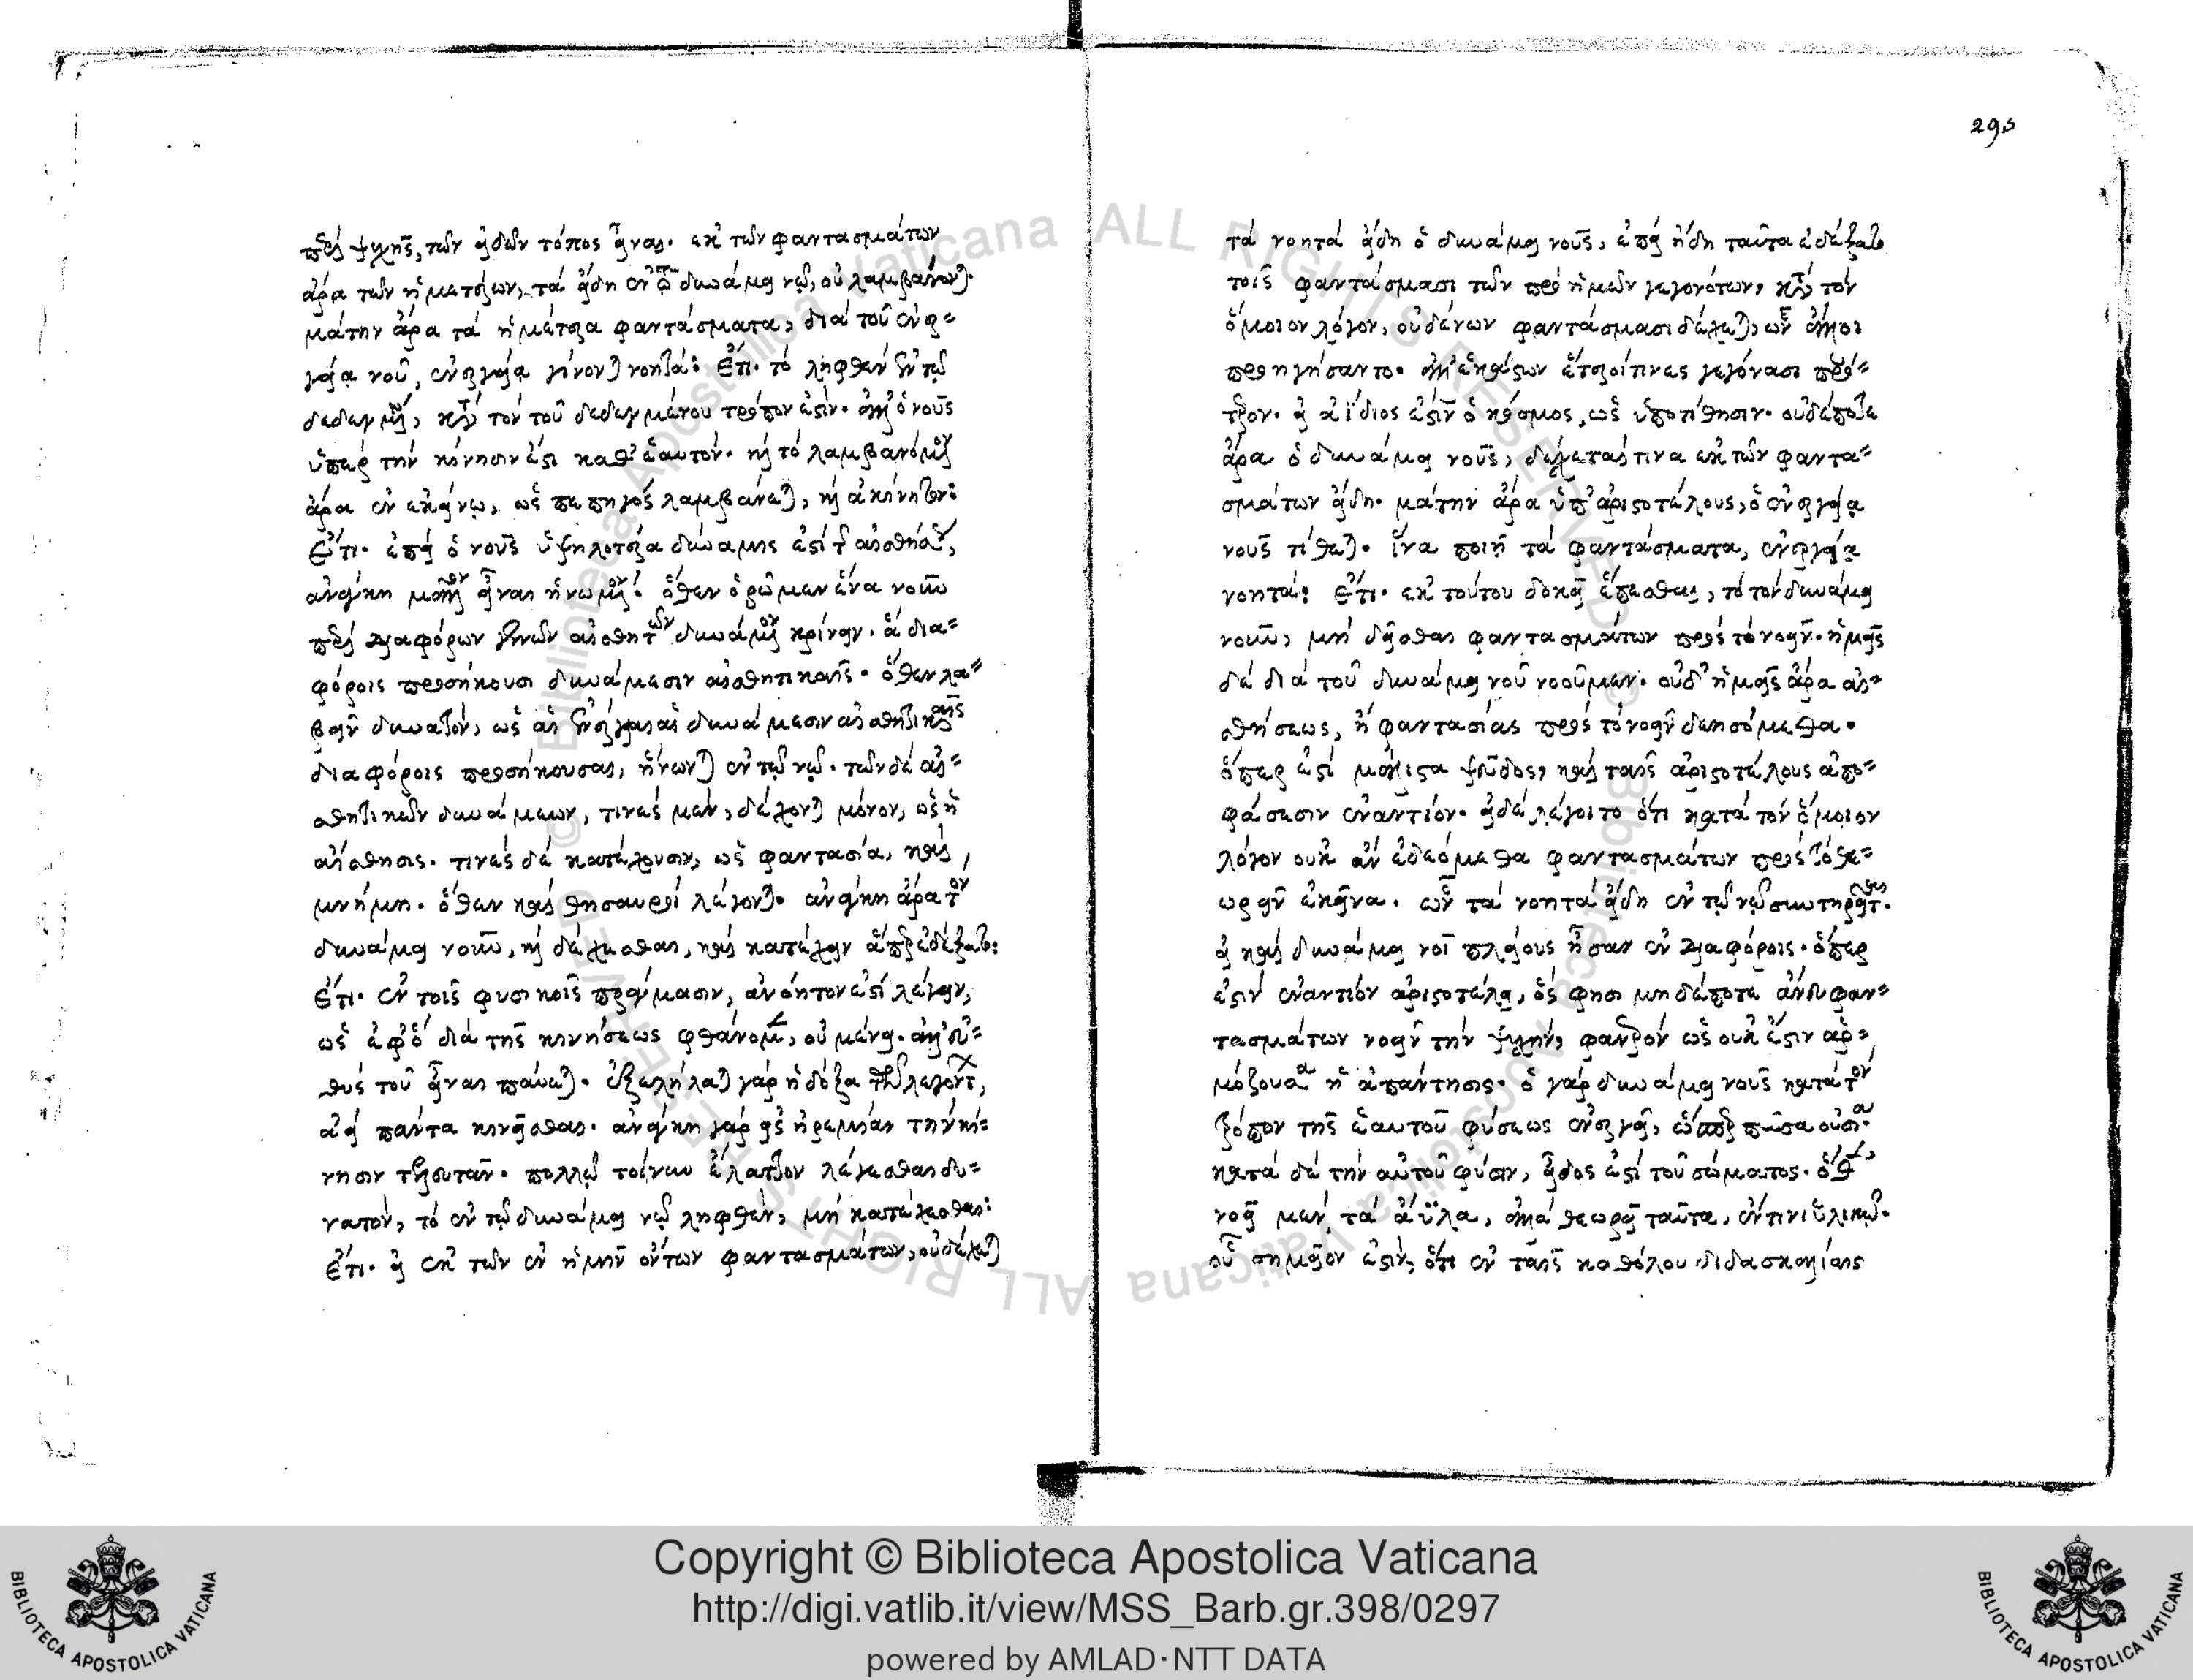 295
περὶ ψυχῆς, τῶν εἰδῶν τόπος εἶναι. ἐκ τῶν φαντασμάτων
ἄρα τῶν ἡμετέρων, τὰ εἴδη ἐν τῷ δυνάμει νῷ, οὐ λαμβάνονται.
μάτην ἄρα τὰ ἡμέτερα φαντάσματα, διὰ τοῦ ἐνερ-
γείᾳ νοῦ, ἐνεργείᾳ γίνονται νοητά: Ἔτι. τὸ ληφθὲν ἐν τῷ
δεδεγμένῳ, κατὰ τὸν τοῦ δεδεγμένου τρόπον ἐστίν. ἀλλ' ὁ νοῦς
ὑπὲρ τὴν κίνησιν ἐστὶ καθ' ἑαυτόν. καὶ τὸ λαμβανόμενον
ἄρα ἐν ἐκείνῳ, ὡς πεπηγὸς λαμβάνεται, καὶ ἀκίνητον:
Ἔτι. ἐπεὶ ὁ νοῦς ὑψηλοτέρα δύναμις ἐστὶ τῆς αἰσθήσεως,
ἀνάγκη μᾶλλον εἶναι ἡνωμένον: ὅθεν ὁρῶμεν ἕνα νοῦν
περὶ διαφόρων γενῶν αἰσθητῶν δυνάμενον κρίνειν. ἃ δια-
φόροις προσήκουσι δυνάμεσιν αἰσθητικαῖς. ὅθεν λα-
βεῖν δυνατὸν, ὡς αἱ ἐνέργειαι αἱ δυνάμεσιν αἰσθητικαῖς
διαφόροις προσήκουσαι, ἥνωνται ἐν τῷ νῷ. τῶν δὲ αἰ-
σθητικῶν δυνάμεων, τινὲς μὲν, δέχονται μόνον, ὡς ἡ
αἴσθησις. τινὲς δὲ κατέχουσιν, ὡς φαντασία, καὶ
μνήμη. ὅθεν καὶ θησαυροὶ λέγονται. ἀνάγκη ἄρα τὸν
δυνάμει νοῦν, καὶ δέχεσθαι, καὶ κατέχειν ἅπερ ἐδέξατο:
Ἔτι. ἐν τοῖς φυσικοῖς πράγμασιν, ἀνόητον ἐστὶ λέγειν,
ὡς ἐφ' ὃ διὰ τῆς κινήσεως φθάνομεν, οὐ μένει. ἀλλ' εὐ-
θὺς τοῦ εἶναι παύεται. ἐξελήλαται γὰρ ἡ δόξα τῶν λεγόντων,
ἀεὶ πάντα κινεῖσθαι. ἀνάγκη γὰρ εἰς ἠρεμίαν τὴν κί-
νησιν τελευτᾶν. πολλῷ τοίνυν ἔλαττον λέγεσθαι δυ-
νατὸν, τὸ ἐν τῷ δυνάμει νῷ ληφθὲν, μὴ κατέχεσθαι:
Ἔτι. εἰ ἐκ τῶν ἐν ἡμῖν ὄντων φαντασμάτων, οὐ δέχεται
τὰ νοητὰ εἴδη ὁ δυνάμει νοῦς, ἐπεὶ ἤδη ταῦτα ἐδέξατο
τοῖς φαντάσμασι τῶν πρὸ ἡμῶν γεγονότων, κατὰ τὸν
ὅμοιον λόγον, οὐδένων φαντάσμασι δέχεται, ὧν ἄλλοι
προηγήσαντο. ἀλλ' ἑκατέρων ἕτεροί τινες γεγόνασι πρό-
τερον. εἰ ἀΐδιος ἐστὶν ὁ κόσμος, ὡς ὑποτίθησιν. οὐδέποτε
ἄρα ὁ δυνάμει νοῦς, δέχεταί τινα ἐκ τῶν φαντα-
σμάτων εἴδη. μάτην ἄρα ὑπ' ἀριστοτέλους, ὁ ἐνεργείᾳ
νοῦς τίθεται. ἵνα ποιῇ τὰ φαντάσματα, ἐνεργείᾳ
νοητά: Ἔτι. ἐκ τούτου δοκεῖ ἕπεσθαι, τὸ τὸν δυνάμει
νοῦν, μὴ δεῖσθαι φαντασμάτων πρὸς τὸ νοεῖν. ἡμεῖς
δὲ διὰ τοῦ δυνάμει νοῦ νοοῦμεν. οὐδ' ἡμεῖς ἄρα αἰ-
σθήσεως, ἢ φαντασίας πρὸς τὸ νοεῖν δεησόμεθα.
ὅπερ ἐστὶ μάλιστα ψεῦδος, καὶ ταῖς ἀριστοτέλους ἀπο-
φάσεσιν ἐναντίον. εἰ δὲ λέγοιτο ὅτι κατὰ τὸν ὅμοιον
λόγον οὐκ ἂν ἐδεόμεθα φαντασμάτων πρὸς τὸ θε-
ωρεῖν ἐκεῖνα. ὧν τὰ νοητὰ εἴδη ἐν τῷ νῷ συντηρεῖται.
εἰ καὶ δυνάμει νοῖ πλείους ἦσαν ἐν διαφόροις. ὅπερ
ἐστὶν ἐναντίον ἀριστοτέλει, ὅς φησι μηδέποτε ἄνευ φαν-
τασμάτων νοεῖν τὴν ψυχὴν, φανερὸν ὡς οὐκ ἔστιν ἁρ-
μόζουσα ἡ ἀπάντησις. ὁ γὰρ δυνάμει νοῦς κατὰ τὸν
τρόπον τῆς ἑαυτοῦ φύσεως ἐνεργεῖ, ὥσπερ πᾶσα οὐσία.
κατὰ δὲ τὴν αὐτοῦ φύσιν, εἶδος ἐστὶ τοῦ σώματος. ὅθεν,
νοεῖ μὲν τὰ ἄϋλα, ἀλλὰ θεωρεῖ ταῦτα, ἔν τινι ὑλικῷ.
οὗ σημεῖον ἐστὶν, ὅτι ἐν ταῖς καθόλου διδασκαλίαις
Copyright © Biblioteca Apostolica Vaticana
http://digi.vatlib.it/view/MSS_Barb.gr.398/0297
powered by AMLAD·NTT DATA
BIBLIOTECA APOSTOLICA VATICANA
BIBLIOTECA APOSTOLICA VATICANA
© Biblioteca Apostolica Vaticana ALL RIGHTS RESERVED
© Biblioteca Apostolica Vaticana ALL RIGHTS RESERVED